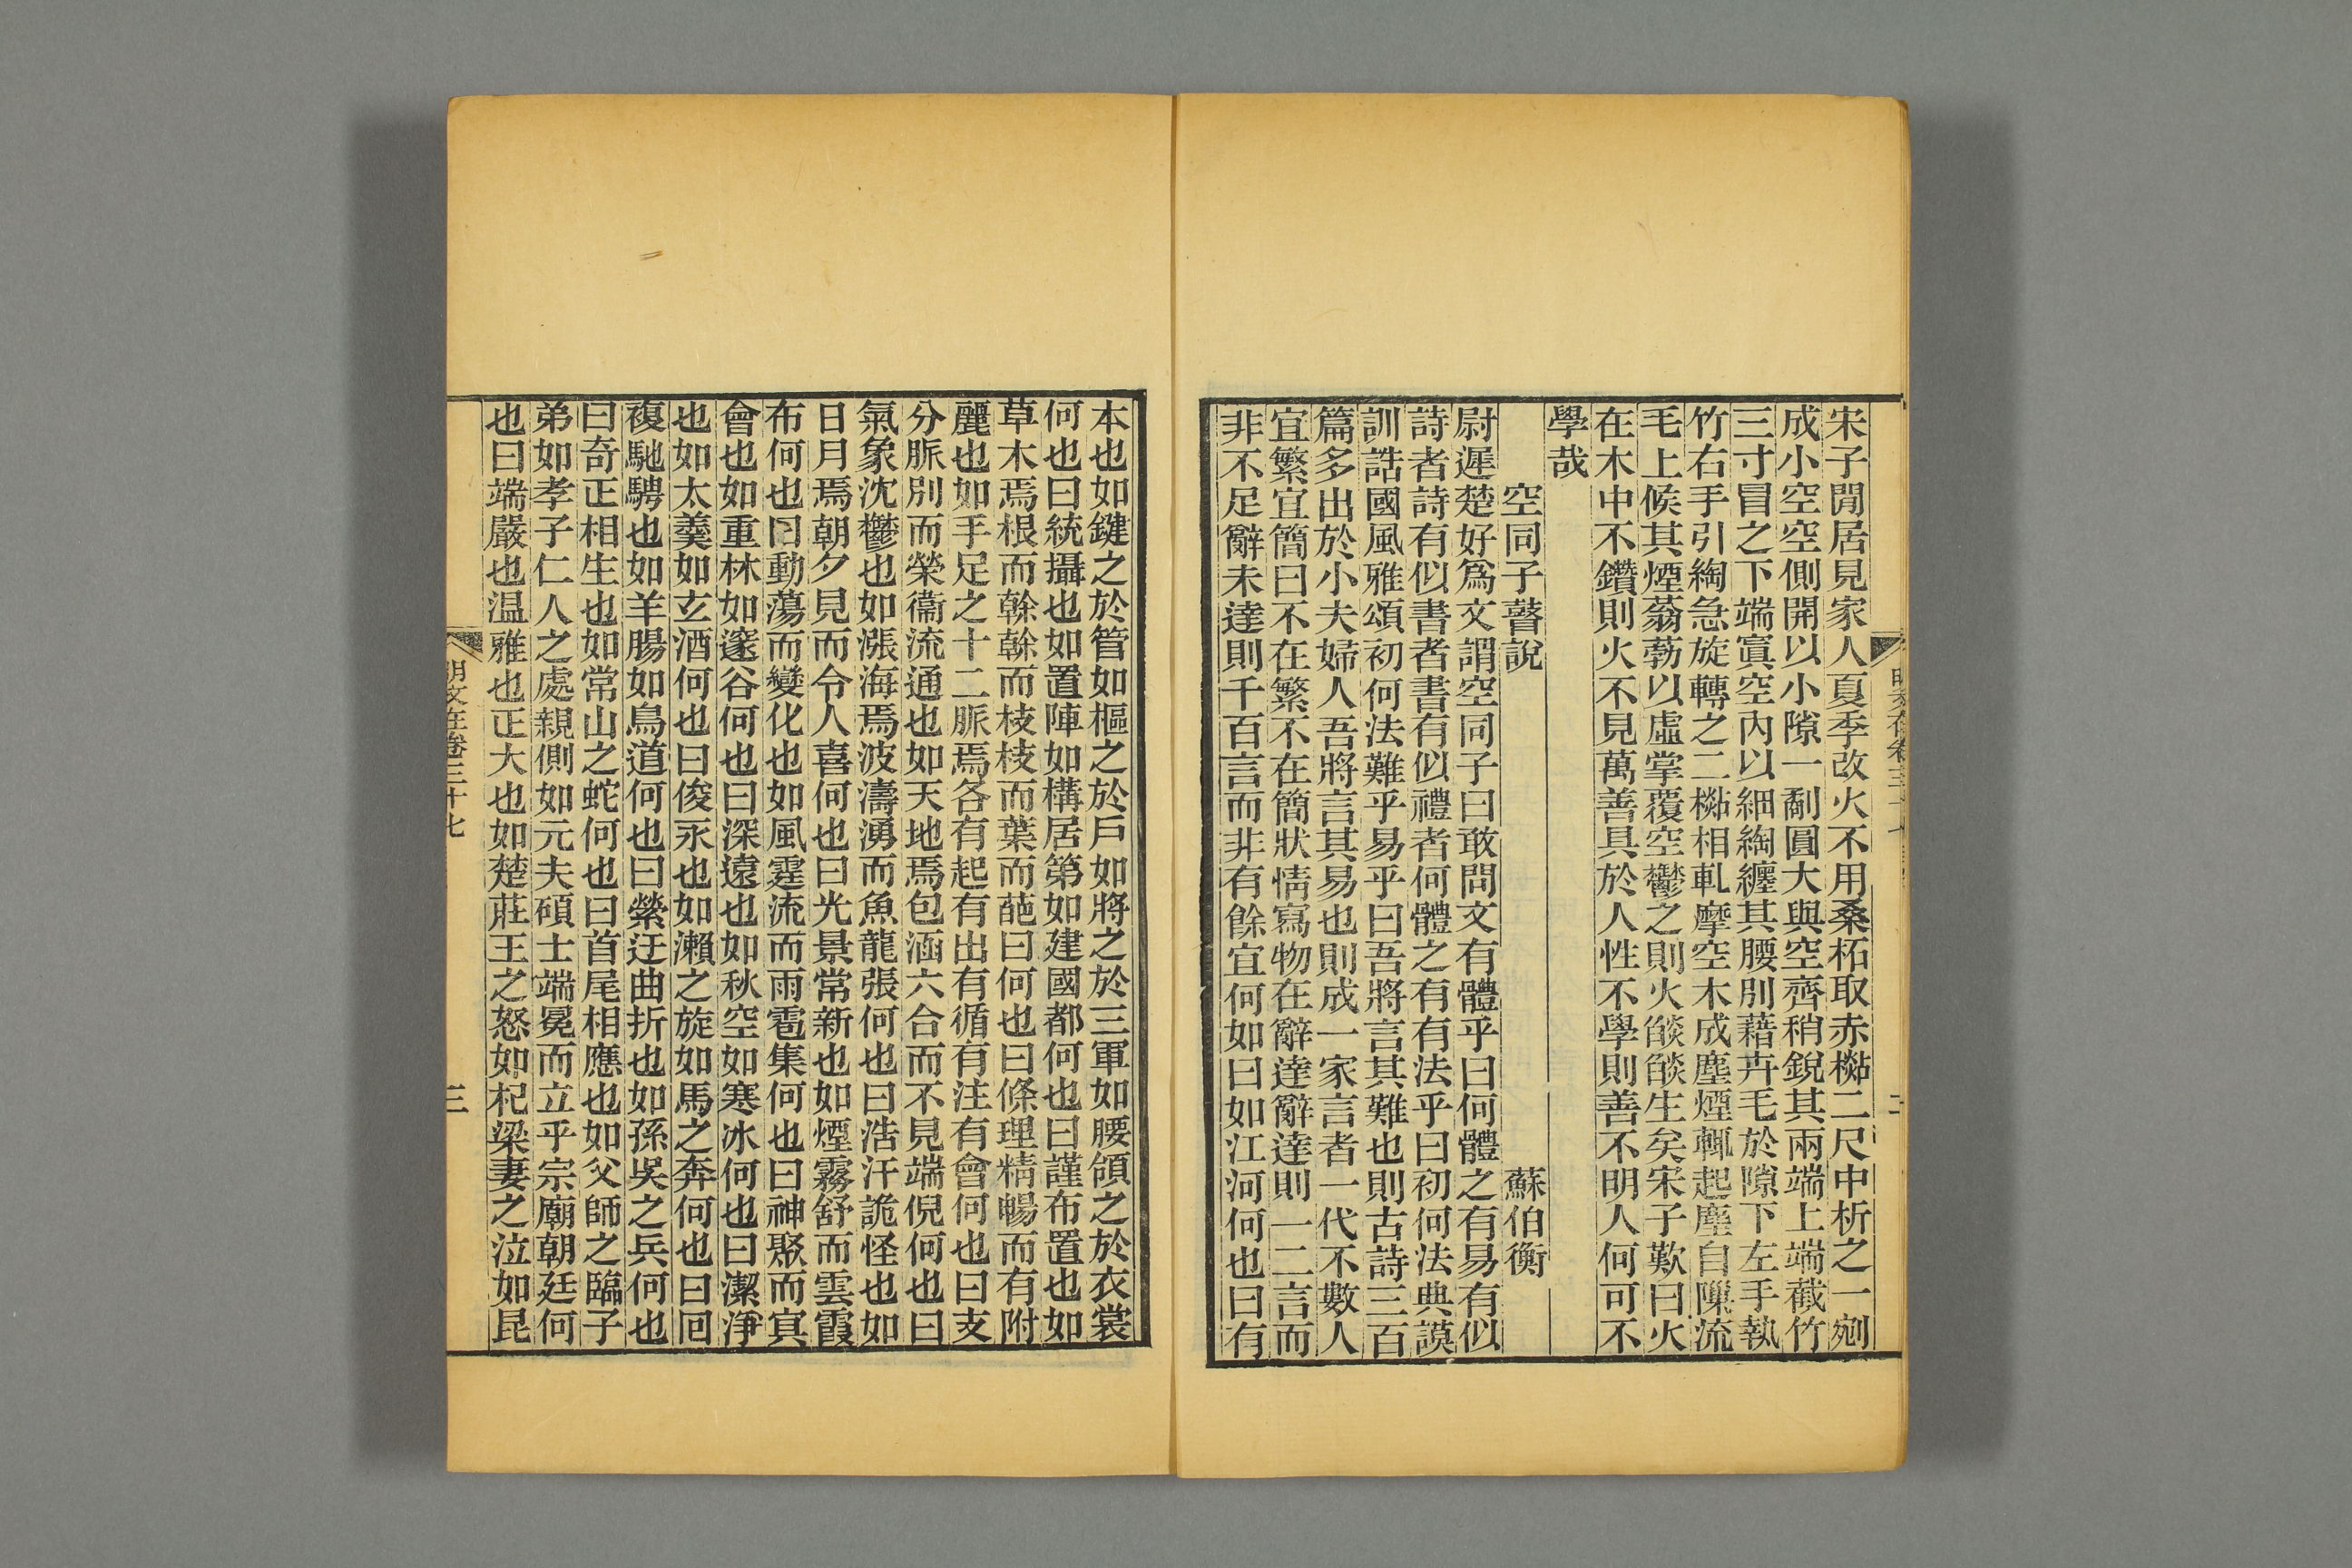 宋子閒居見家人夏季改火不用桑柘取赤㮨二尺中析之一剜
成小空空側開以小隙一劀圓大與空齊稍銳其兩端上端截竹
三寸冒之下端窴空內以細綯纏其腰別藉卉毛於隙下左手執
竹右手引綯急旋轉之二㮨相軋摩空木成塵煙輒起塵自隟流
毛上候其煙蓊勃以虛掌覆空鬱之則火燄燄生矣宋子歎曰火
在木中不鑽則火不見萬善具於人性不學則善不明人何可不
學哉
空同子瞽說　蘇伯衡
尉遲楚好爲文謂空同子曰敢問文有體乎曰何體之有易有似
詩者詩有似書者書有似禮者何體之有有法乎曰初何法典謨
訓誥國風雅頌初何法難乎易乎曰吾將言其難也則古詩三百
篇多出於小夫婦人吾將言其易也則成一家言者一代不數人
宜繁宜簡曰不在繁不在簡狀情寫物在辭達辭達則一二言而
非不足辭未達則千百言而非有餘宜何如曰如江河何也曰有
本也如鍵之於管如樞之於戶如將之於三軍如腰領之於衣裳
何也曰統攝也如置陣如構居第如建國都何也曰謹布置也如
草木焉根而榦榦而枝枝而葉而葩曰何也曰條理精暢而有附
麗也如手足之十二脈焉各有起有出有循有注有會何也曰支
分脈別而榮衞流通也如天地焉包涵六合而不見端倪何也曰
氣象沈鬱也如漲海焉波濤湧而魚龍張何也曰浩汗詭怪也如
日月焉朝夕見而令人喜何也曰光景常新也如煙霧舒而雲霞
布何也曰動蕩而變化也如風霆流而雨雹集何也曰神聚而冥
會也如重林如邃谷何也曰深遠也如秋空如寒冰何也曰潔淨
也如太羹如玄酒何也曰俊永也如瀨之旋如馬之奔何也曰回
複馳騁也如羊腸如鳥道何也曰縈迂曲折也如孫吳之兵何也
曰奇正相生也如常山之蛇何也曰首尾相應也如父師之臨子
弟如孝子仁人之處親側如元夫碩士端冕而立乎宗廟朝廷何
也曰端嚴也溫雅也正大也如楚莊王之怒如杞梁妻之泣如昆
明文在卷三十七
三